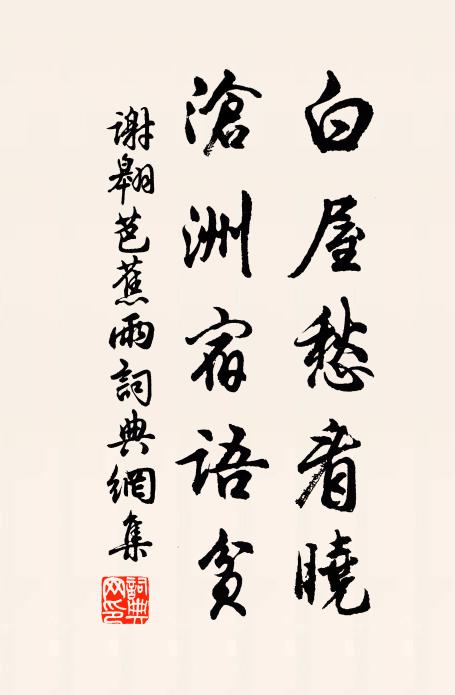 白屋愁看曉
滄洲宿語貧
謝翱芭蕉雨詞典網集
詞典网印